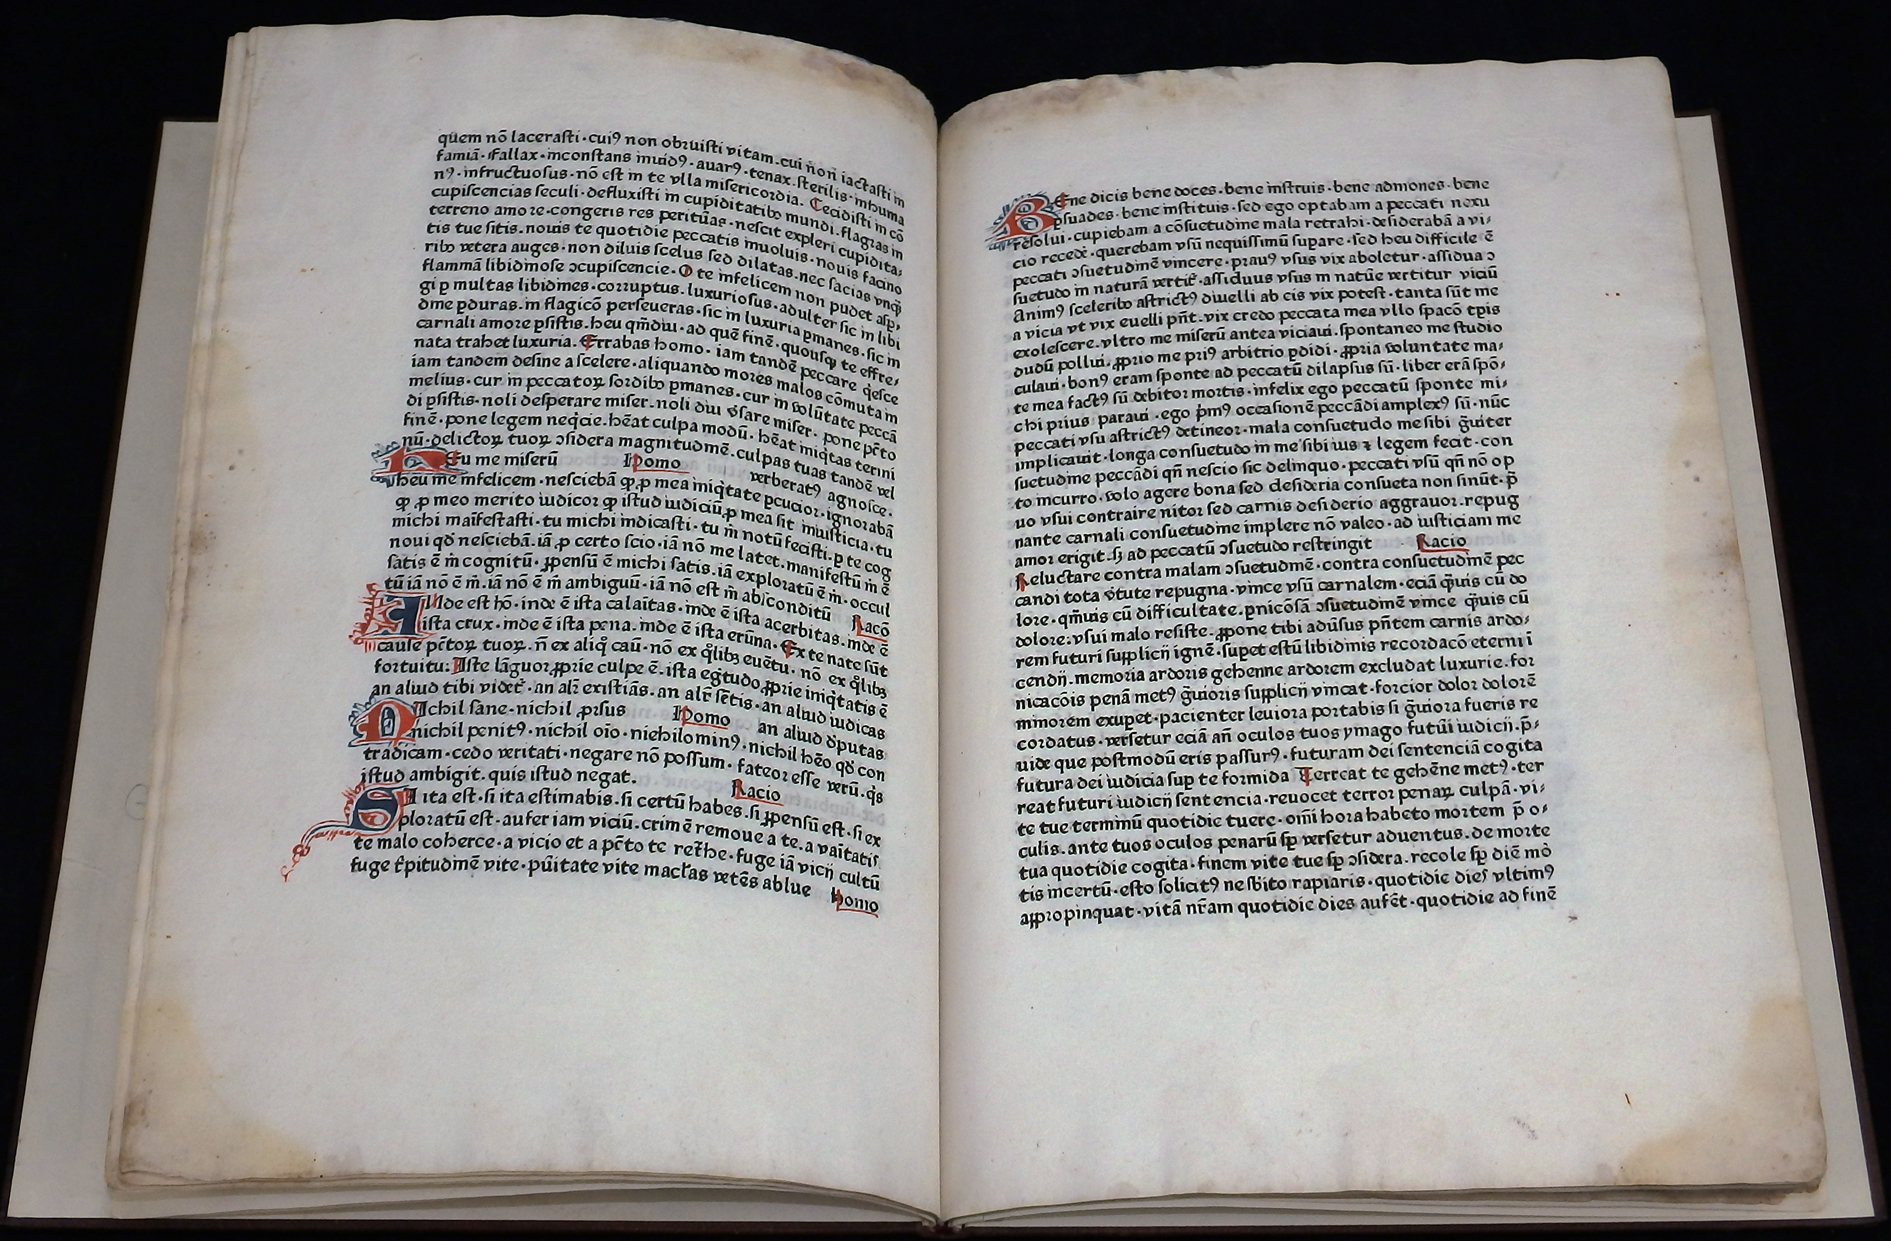 quem nō lacerasti·cuiꝰ non obruisti vitam.cui n̄on iactasti in
famiā·Fallax·inconstans inuidꝰ·auarꝰ·tenax.sterilis·inhuma
nꝰ·infructuosus·nō est in te vlla misericordia. Cecidisti in cō
cupiscencias seculi·defluxisti in cupiditatibꝫ mundi.flagras in
terreno amore·congeris res perituras·nescit expleri cupidita⸗
tis tue sitis.nouis te quotidie peccatis inuoluis·nouis facino
ribꝫ vetera auges·non diluis scelus sed dilatas.nec sacias vnqꝫ
flammā libidinose ↄcupiscencie·O te infelicem non pudet asp⸗
gi ꝑ multas libidines·corruptus.luxuriosus.adulter sic in libi
dine ꝑduras.in flagicō perseueras·sic in luxuria ꝑmanes.sic in
carnali amore ꝑsistis.heu qm̄diu·ad quē finē·quousqꝫ te effre⸗
nata trahet luxuria. Errabas homo·iam tandē peccare q̄esce
iam tandem desine a scelere·aliquando mores malos cōmuta in
melius·cur in peccatoꝝ sordibꝫ ꝑmanes.cur in volūtate peccā
di ꝑsistis·noli desperare miser.noli diu v̄sare miser· pone pc̄to
finē·pone legem neqͥcie.hēat culpa modū·hēat iniqͥtas termi
nū·delictoꝝ tuoꝝ ↄsidera magnitudinē.culpas tuas tandē vel
HEu me miserū Homo verberatꝰ agnosce·
heu me infelicem·nesciebā ꝙ ꝓ mea iniqͥtate ꝑcucior·ignorabā
ꝙ ꝓ meo merito iudicor ꝙ istud iudiciū ꝓ mea sit iniusticia·tu
michi maīfestasti·tu michi indicasti·tu m̄ notū fecisti·ꝑ te cog
noui qd̄ nesciebā.iā ꝓ certo scio·iā nō me latet.manifestū m̄ ē
satis ē m̄ cognitū·ꝓpensū ē michi satis.iā exploratū ē m̄·occul
tū iā nō ē m̄.iā nō ē m̄ ambiguū·iā nō est m̄ abſconditū Racō
INde est hō·inde ē ista calaītas·inde ē ista acerbitas.inde ē
ista crux·inde ē ista pena.inde ē ista erūna·Ex te nate sūt
cause pc̄toꝝ tuoꝝ.n̄ ex aliqͦ caū·nō ex qͦlibꝫ euētu·nō ex qͦlibꝫ
fortuitu: Iste lāguor ꝓprie culpe ē.ista eḡtudo ꝓprie iniqͥtatis ē
an aliud tibi videt᷑·an alr̄ existiās.an alr̄ sētis·an aliud iudicas
NIchil sane·nichil ꝓrsus Homo an aliud d̄putas
nichil penitꝰ·nichil oīo·nichilominꝰ·nichil hēo qd̄ con
tradicam·cedo veritati·negare nō possum·fateor esse verū·qͥs
istud ambigit.quis istud negat. Racio
SI ita est·si ita estimabis.si certū habes.si ꝓpensū est·si ex
ploratū est·aufer iam viciū.crimē remoue a te.a vaītatis
te malo coherce·a vicio et a pc̄to te ret᷑he·fuge iā vicij cultū
fuge t᷑pitudinē vite·puītate vite mac̄las vetēs ablue Homo
BEne dicis bene doces.bene instruis·bene admones·bene
ꝑsuades·bene instituis·sed ego optabam a peccati nexu
resolui·cupiebam a cōsuetudine mala retrahi·desiderabā a vi⸗
cio recedē·querebam vsū nequissimū suꝑare·sed heu difficile ē
peccati ↄsuetudinē vincere·prauꝰ vsus vix aboletur·assidua ↄ
suetudo in naturā vertit᷑·assiduus vsus in natūe vertitur viciū
Animꝰ sceleribꝫ astrictꝰ diuelli ab eis vix potest·tanta sūt me
a vicia vt vix euelli pn̄t·vix credo peccata mea vllo spacō tꝑis
exolescere.vltro me miserū antea viciaui.spontaneo me studio
dudū pollui.ꝓprio me priꝰ arbitrio ꝑdidi·ꝓpria voluntate ma⸗
culaui·bonꝰ eram sponte ad peccatū dilapsus sū·liber erā spō⸗
te mea factꝰ sū debitor mortis·infelix ego peccatū sponte mi⸗
chi prius paraui·ego pͥmꝰ occasionē peccādi amplexꝰ sū·nūc
peccati vsu astrictꝰ detineor·mala consuetudo me sibi gͣuiter
implicauit·longa consuetudo in me sibi ius ⁊ legem fecit·con
suetudine peccādi qn̄ nescio sic delinquo·peccati vsū qn̄ nō op
to incurro.volo agere bona sed desideria consueta non sinūt·p̄
uo vsui contraire nitor sed carnis desiderio aggrauor.repug
nante carnali consuetudine implere nō valeo·ad iusticiam me
amor erigit·sꝫ ad peccatū ↄsuetudo restringit Racio
Reluctare contra malam ↄsuetudinē·contra consuetudinē pec
candi tota v̄tute repugna·vince vsū carnalem·eciā qͣuis cū do
lore·qm̄uis cū difficultate.ꝑnicōsā ↄsuetudinē vince qͣuis cū
dolore:vsui malo resiste.ꝓpone tibi adūsus pn̄tem carnis ardo⸗
rem futuri supplicij ignē·suꝑet estū libidinis recordacō eterni ī
cendij.memoria ardoris gehenne ardorem excludat luxurie.for
nicacōis penā metꝰ gͣuioris supplicij vincat·forcior dolor dolorē
minorem exuꝑet·pacienter leuiora portabis si gͣuiora fueris re
cordatus·versetur eciā an̄ oculos tuos ymago futuī iudicij.p̄⸗
uide que postmodū eris passurꝰ·futuram dei sentenciā cogita
futura dei iudicia suꝑ te formida Terreat te gehēne metꝰ·ter
reat futuri iudicij sentencia·reuocet terror penaꝝ culpā·vi⸗
te tue terminū quotidie tuere·omī hora habeto mortem p̄ o⸗
culis.ante tuos oculos penarū sꝑ versetur aduentus.de morte
tua quotidie cogita·finem vite tue sꝑ ↄsidera.recole sꝑ diē mō
tis incertū·esto solicitꝰ ne sbito rapiaris·quotidie dies vltimꝰ
appropinquat·vitā nr̄am quotidie dies aufēt·quotidie ad finē